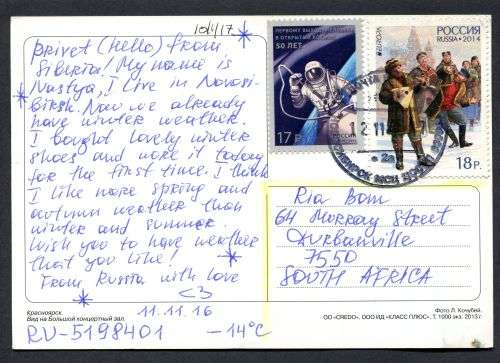 10/1/17
privet (hello) from
Siberia! My name is
Nastya, I live in Novosi-
birsk. Now we already
have winter weather.
I bought lovely winter
shoes and wore it today
for the first time. I think
I like more spring and
autumn weather than
winter and summer.
Wish you to have weather
that you like!
From Russia with love
<3
11.11.16
Красноярск
Вид на Большой концертный зал.
RU-5198401 -14°C
ПЕРВОМУ ВЫХОДУ
В ОТКРЫТЫЙ КОСМОС
50 ЛЕТ
17 р.
РОССИЯ
EUROPA
РОССИЯ
RUSSIA · 2014
18 р.
Ria Bom
64 Murray Street
Durbanville
7550
SOUTH AFRICA
Фото Л. Кочубей.
ОО «CREDO». ООО ИД «КЛАСС ПЛЮС». Т. 1000 экз. 2013 г.